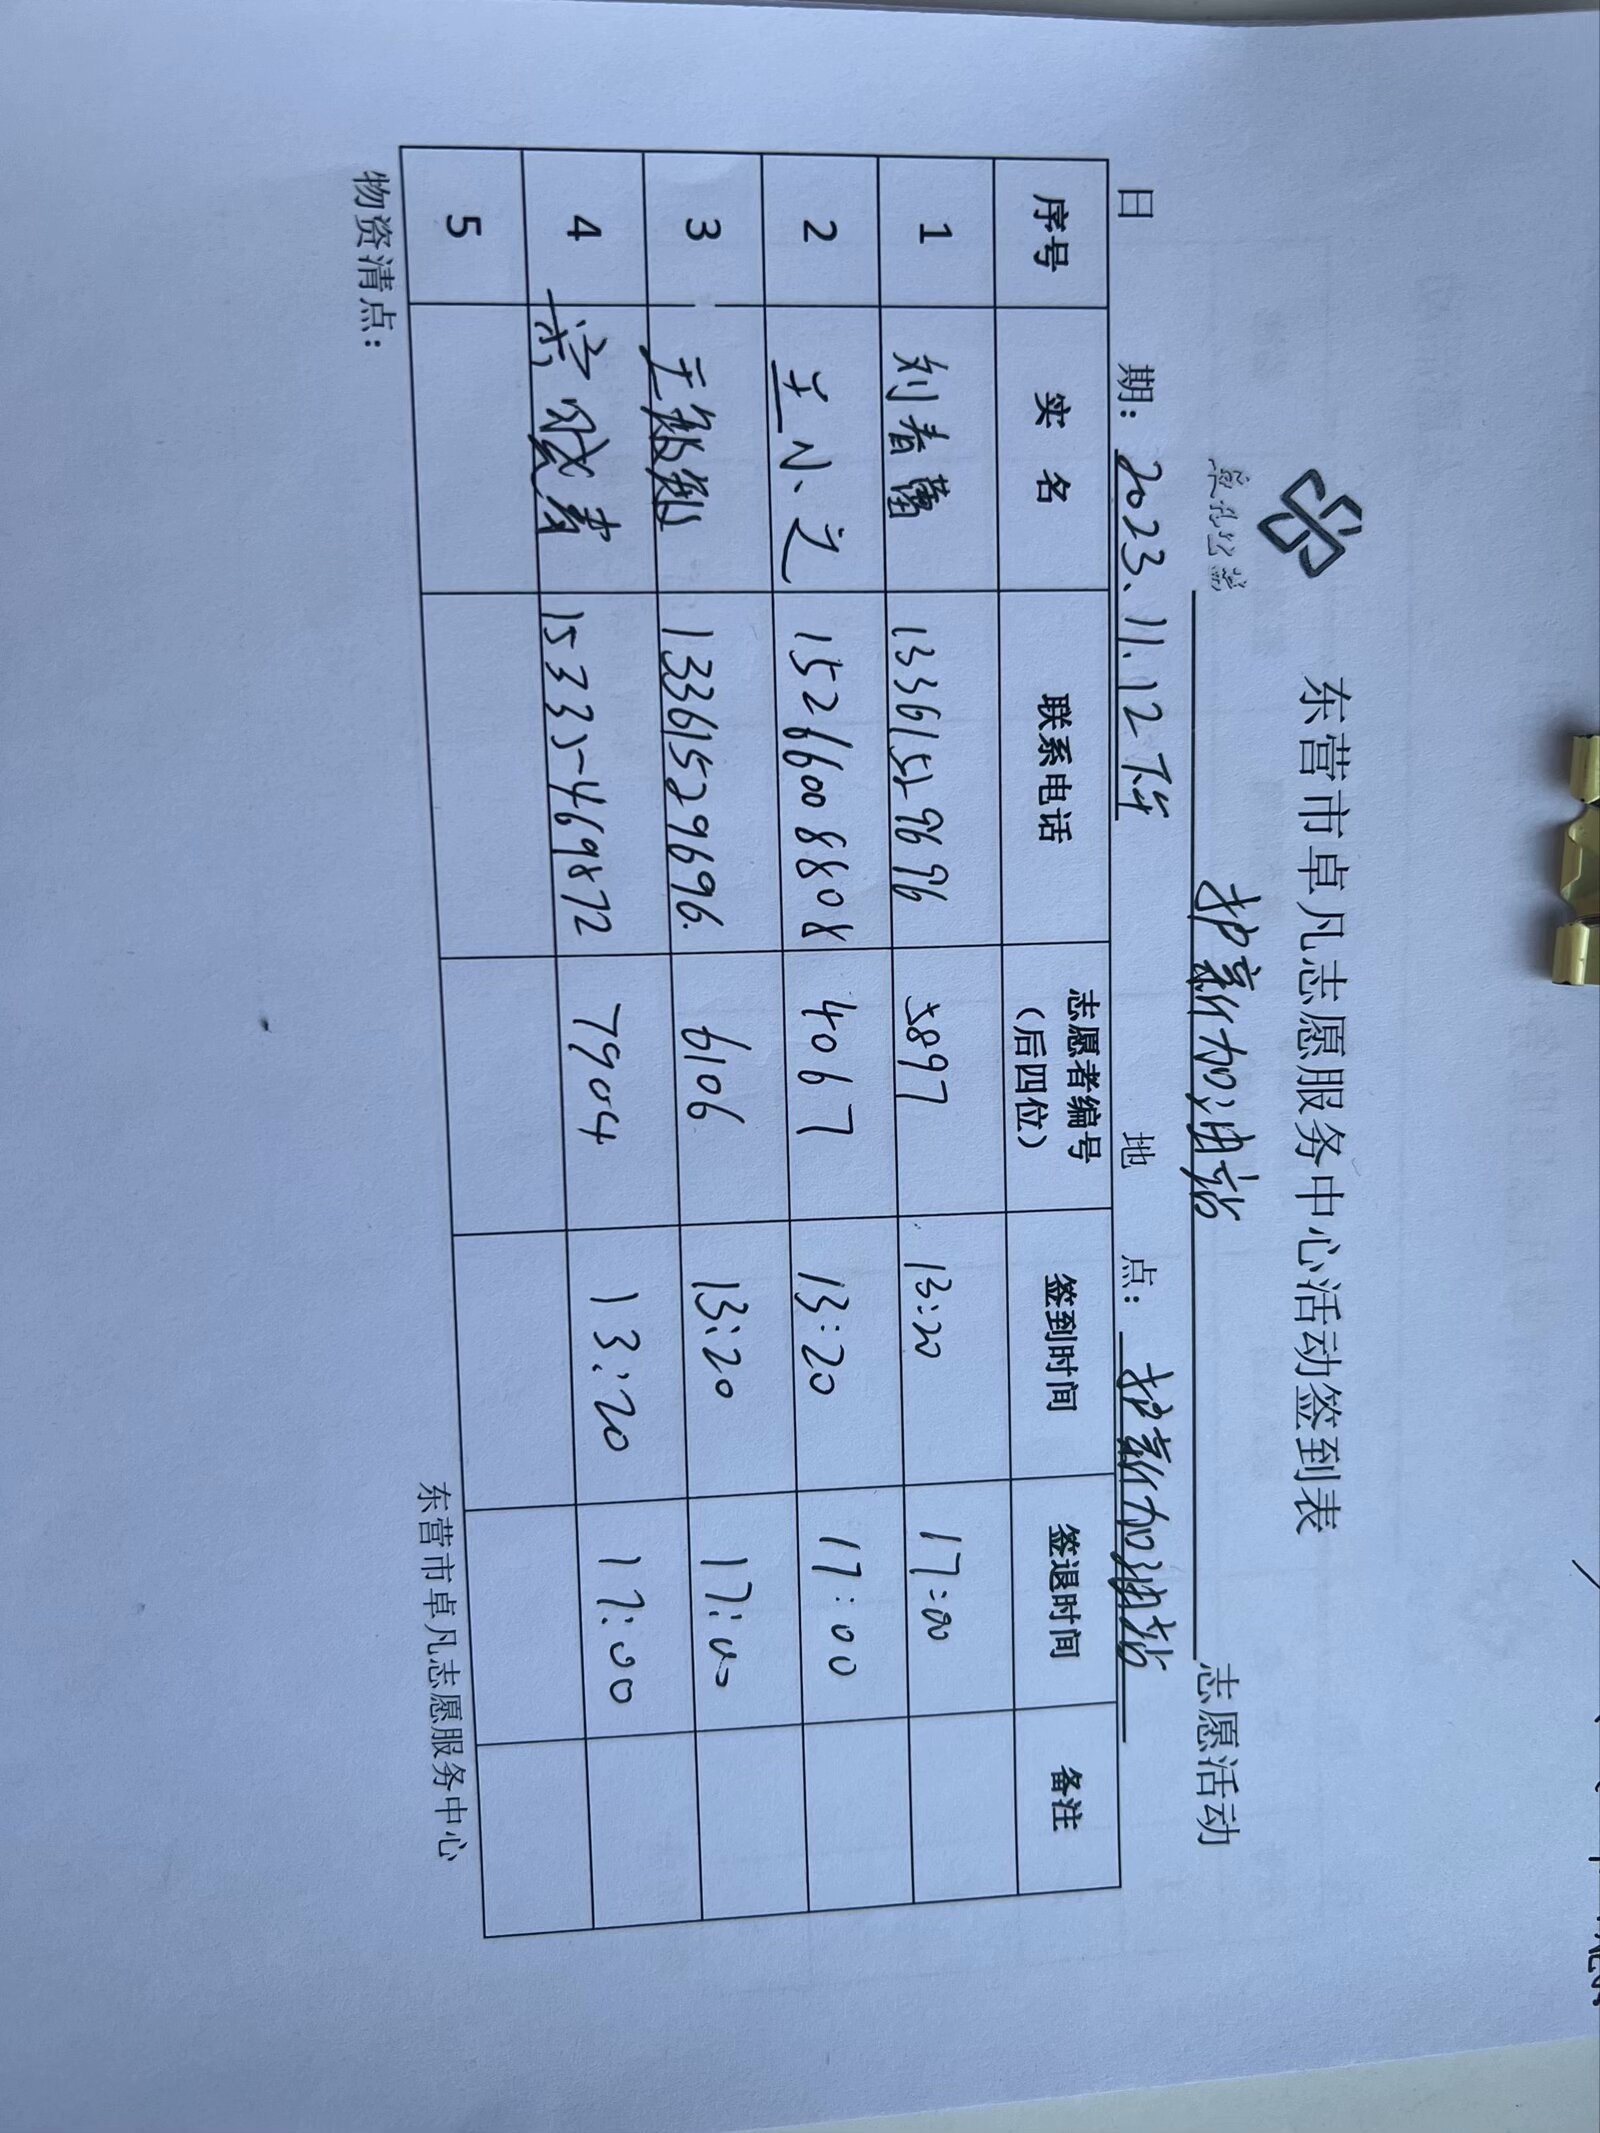 东营市卓凡志愿服务中心活动签到表
卓凡公益
护新加油站 志愿活动
日 期：2023.11.12 下午 地 点：护新加油站
序号 实 名 联系电话 志愿者编号（后四位） 签到时间 签退时间 备注
1 刘春蕾 13361529696 5897 13:20 17:00
2 王小之 15266008808 4067 13:20 17:00
3 13361529696. 6106 13:20 17:00
4 15333469872 7904 13:20 17:00
5
东营市卓凡志愿服务中心
物资清点：